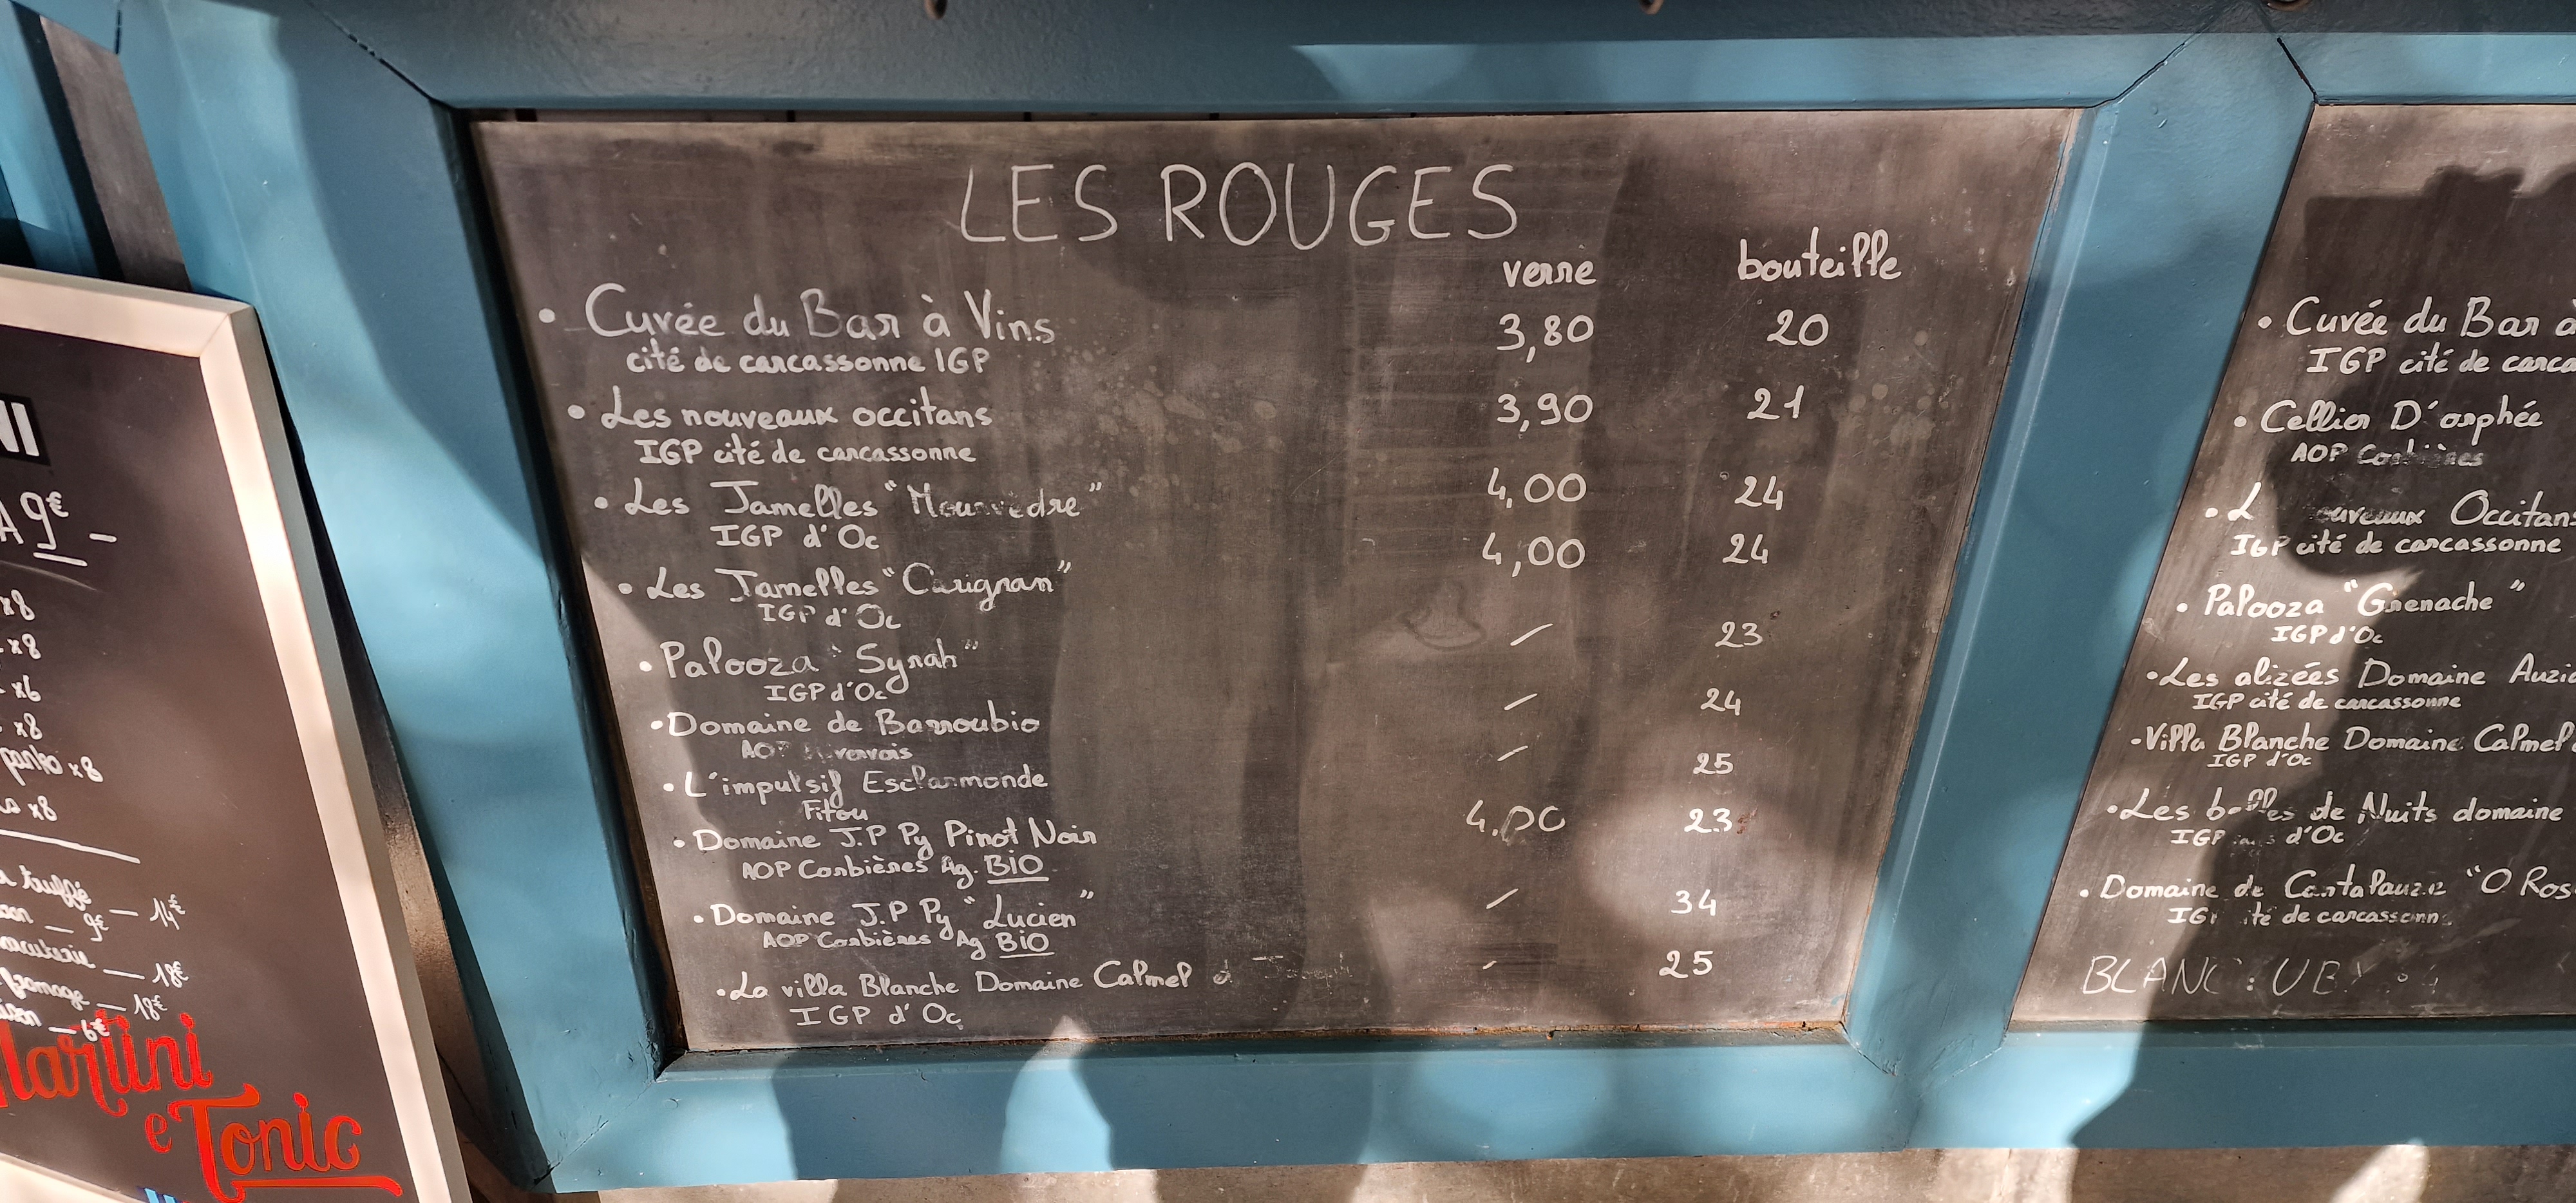 LES ROUGES
verre bouteille
• Cuvée du Bar à Vins 3,80 20
cité de carcassonne IGP
• Les nouveaux occitans 3,90 21
IGP cité de carcassonne
• Les Jamelles "Mourvèdre" 4,00 24
IGP d'Oc
• Les Jamelles "Carignan" 4,00 24
IGP d'Oc
• Palooza "Syrah" / 23
IGP d'Oc
• Domaine de Barroubio / 24
AOP
• L'impulsif Esclarmonde / 25
Fitou
• Domaine J.P Py Pinot Noir 4.00 23
AOP Corbières Ag. BIO
• Domaine J.P Py "Lucien" / 34
AOP Corbières Ag BIO
• La villa Blanche Domaine Calmel / 25
IGP d'Oc
• Cuvée du Bar
IGP cité de
• Cellier D'orphée
AOP Corbières
Occitans
IGP cité de carcassonne
• Palooza "Grenache"
IGP d'Oc
• Les alizées Domaine
IGP cité de carcassonne
- Villa Blanche Domaine Calmel
IGP d'Oc
• Les de Nuits domaine
IGP d'Oc
• Domaine de "O
de
BLANC :
A 9€ -
x8
x8
x6
x8
x8
x8
— 14€
— 9€
— 18€
— 18€
— 6€
Martini
e Tonic